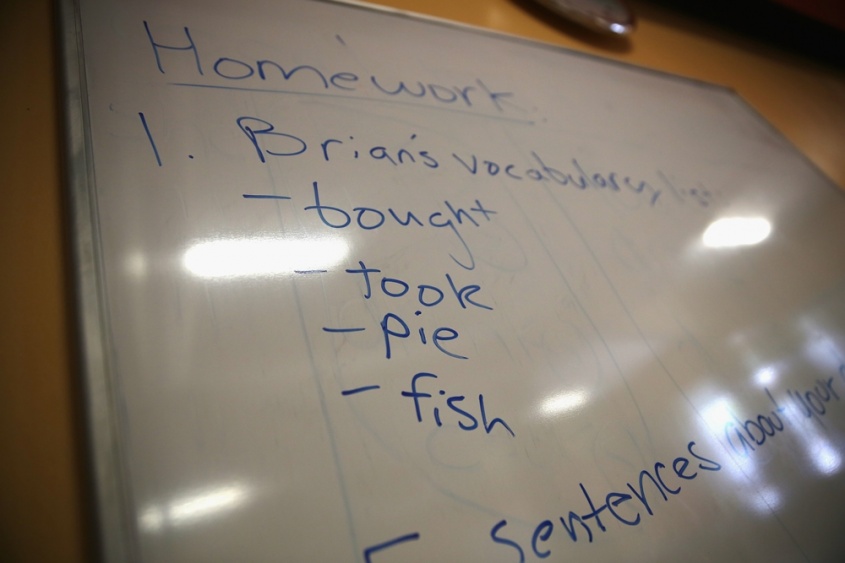 Homework
1. Brian's vocabulary list
- bought
- took
- pie
- fish
sentences about your